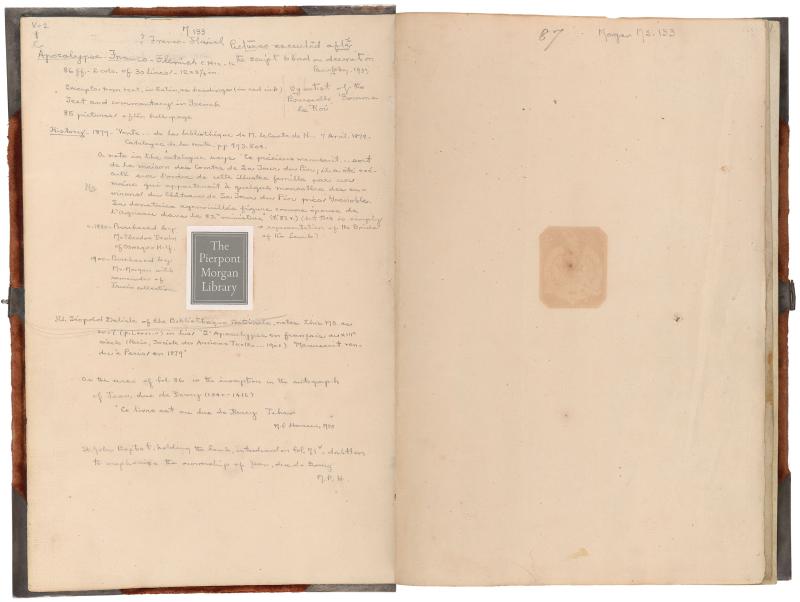 V-2
M 133
? Franco-Flemish Pictures executed after
Apocalypse Franco-Flemish c. the script & band or decoration
86 ff. - 2 cols. of 30 lines -
Excerpts from text, in Latin, as headings (in red ink) by artist of the
Text and commentary in French
85 pictures often half-page
History - 1879 - Vente... de la bibliothèque de M. le Comte de H... 7 Avril, 1879 -
Catalogue de la vente, pp.
A note in the catalogue says "Ce précieux manuscrit... sort
de la maison des Comtes de La Tour du Pin; il a été exé-
cuté sur l'ordre de cette illustre famille par un
moine qui appartenait à quelque monastère des en-
No virons du Château de La Tour du Pin près Grenoble.
La donatrice agenouillée figure comme épouse de
l'Agneau dans la 82e miniature" (f. 82v.) (but this is simply
a representation of the Bride
of the Lamb)
Purchased by
Mr Theodore Irwin
of Oswego N.Y.
1900 - Purchased by
Mr. Morgan with
remainder of
Irwin collection
The
Pierpont
Morgan
Library
M. Léopold Delisle of the Bibliothèque Nationale, notes this MS. as
in his "L'Apocalypse en français au XIIIe
siècle (Paris, Société des Anciens Textes... 1901) "Manuscrit ven-
du à Paris en 1879"
On the verso of fol. 86 is the inscription in the autograph
of Jean, duc de Berry (1340-1416)
"Ce livre est au duc de Berry Jehan
St. John Baptist, holding the lamb, introduced on fol. doubtless
to emphasize the ownership of Jean, duc de Berry
M. P. H.
87 Morgan MS. 133